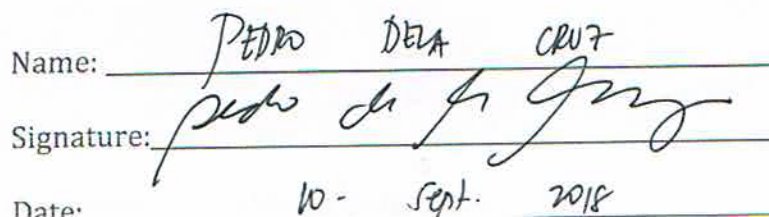 Name: PEDRO DELA CRUZ
Signature: pedro de la Cruz
Date: 10 - Sept. 2018